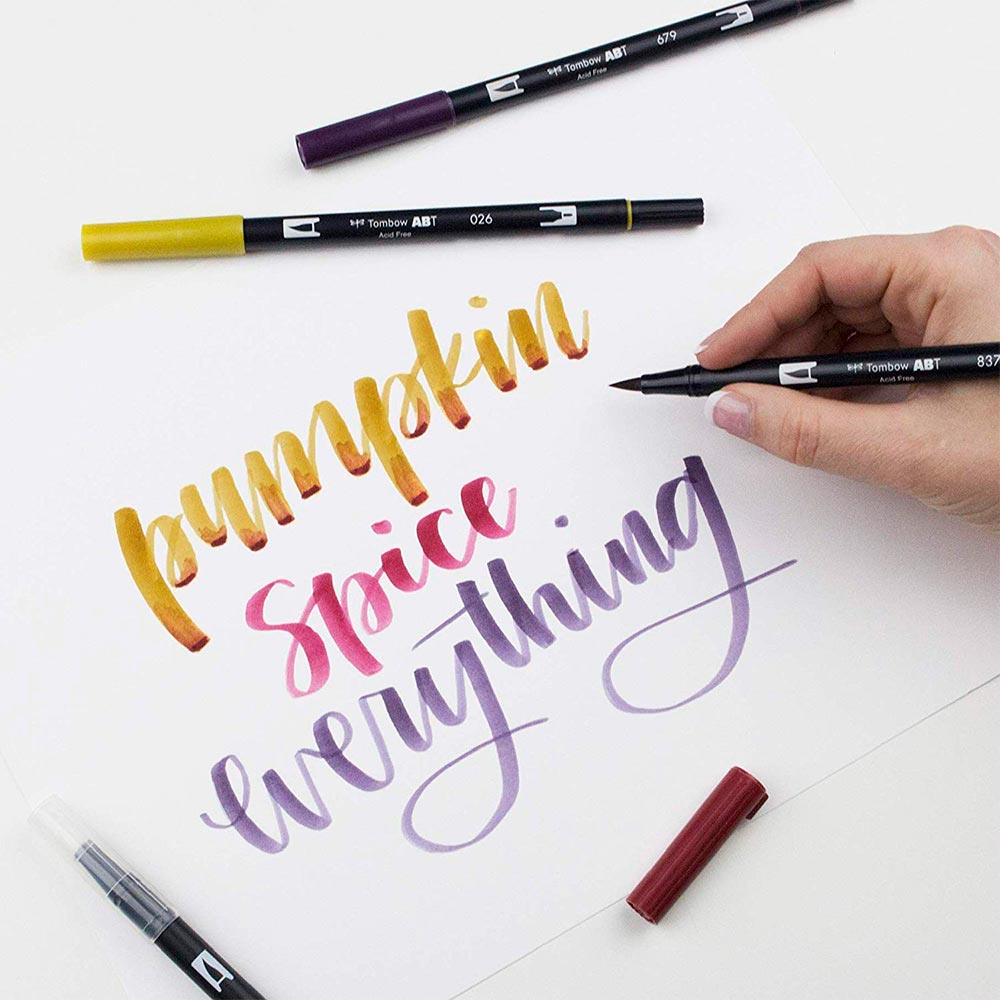 679
Tombow ABT
Acid Free
Tombow ABT 026
Acid Free
pumpkin
Tombow ABT 837
Acid Free
spice
everything